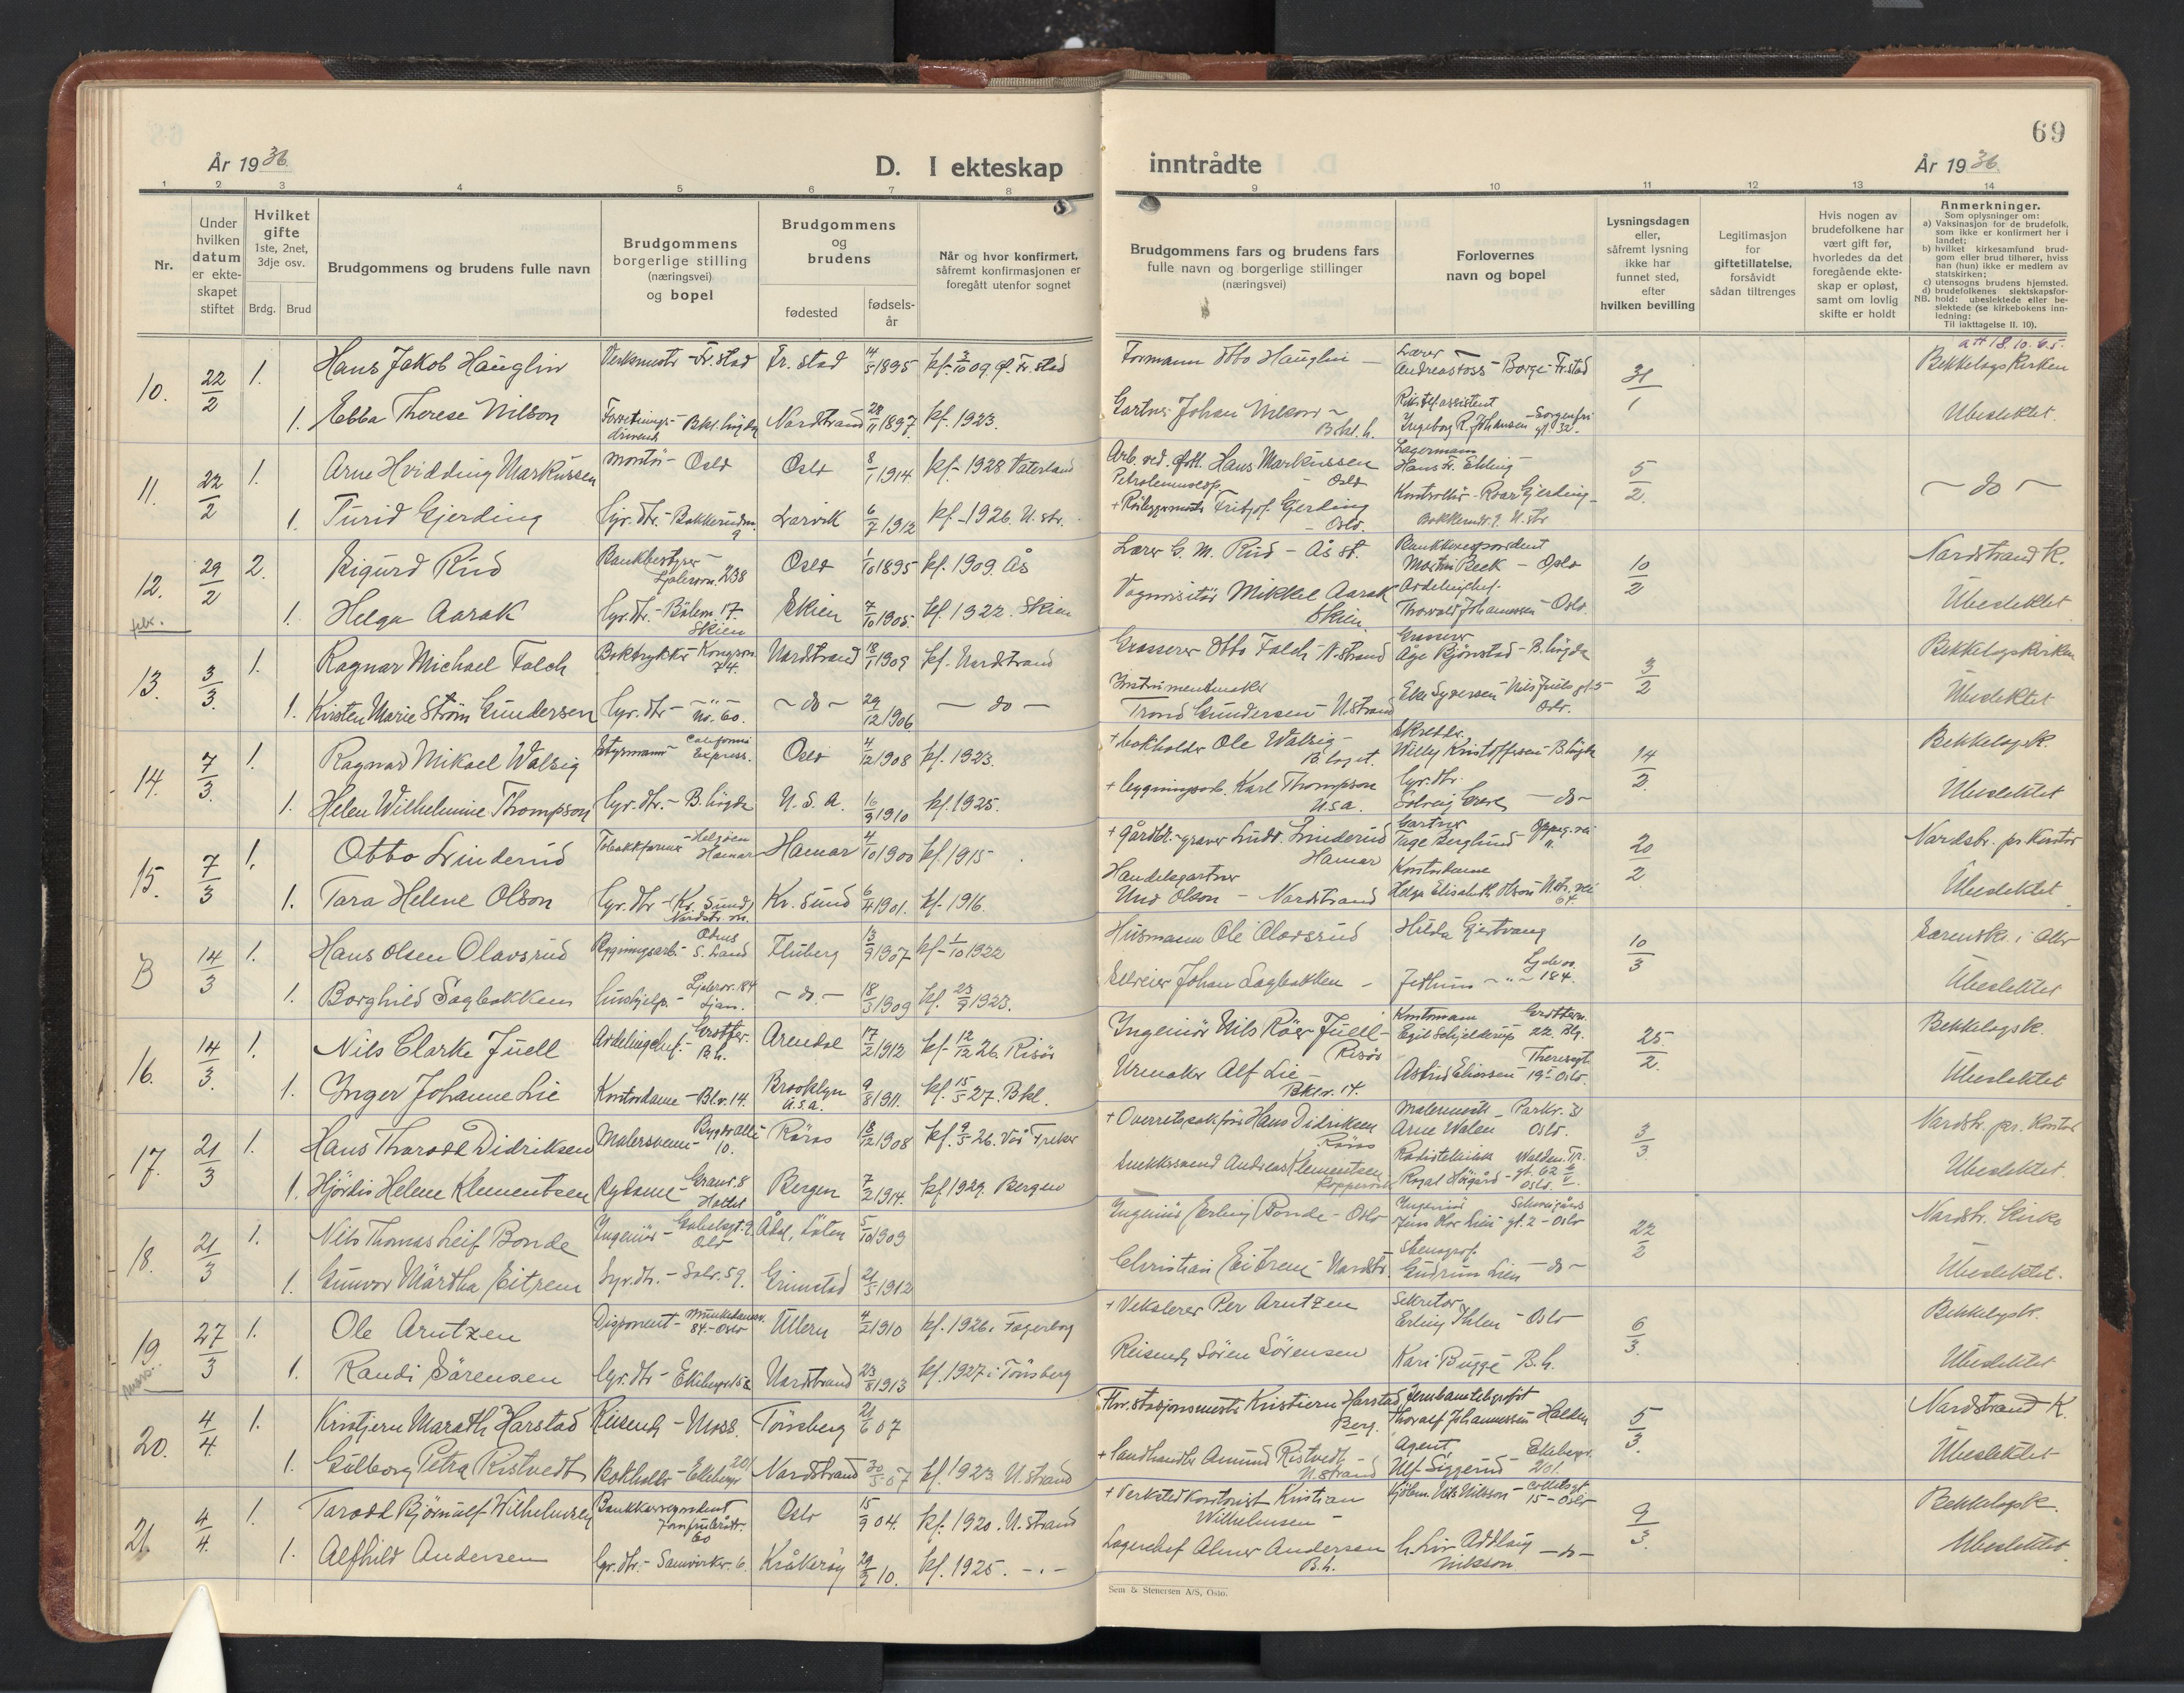 69
År 1936.
D. I ekteskap
inntrådte
År 1936.
1 2 3 4 5 6 7 8 9 10 11 12 13 14
Nr.
Under hvilken datum er ekteskapet stiftet
Hvilket gifte 1ste, 2net, 3dje osv.
Brdg. Brud
Brudgommens og brudens fulle navn
Brudgommens borgerlige stilling (næringsvei) og bopel
Brudgommens og brudens
fødested
fødsels-år
Når og hvor konfirmert, såfremt konfirmasjonen er foregått utenfor sognet
Brudgommens fars og brudens fars fulle navn og borgerlige stillinger (næringsvei)
Forlovernes navn og bopel
Lysningsdagen eller, såfremt lysning ikke har funnet sted, efter hvilken bevilling
Legitimasjon for giftetillatelse, forsåvidt sådan tiltrenges
Hvis nogen av brudefolkene har vært gift før, hvorledes da det foregående ekteskap er opløst, samt om lovlig skifte er holdt
Anmerkninger.
Som oplysninger om:
a) Vaksinasjon for de brudefolk, som ikke er konfirmert her i landet;
b) hvilket kirkesamfund brudgom eller brud tilhører, hvis han (hun) ikke er medlem av statskirken;
c) utensogns brudens hjemsted.
d) brudefolkenes slektskapsforhold: ubeslektede eller beslektede (se kirkebokens innledning:
NB. Til iakttagelse II. 10).
att 18 10. 65.
10. 22/2 1. Hans Jakob Hauglin Verksmestr - Fr.stad Fr. stad 14/5 1895 kf. 3/10 09. Ø. Fr.stad Formann Otto Hauglin Lærer Andreas Foss - Borge - Fr.stad 31/1 Bekkelagskirken
1. Ebba Therese Nilson Forretnings-drivende - Bkl. högda Nordstrand 28/11 1897 kf. 1923. Gartner Johan Nilson - Bekl. h. Rikstlf.assistent Ingeborg R. Johansen - Sorgenfri gt. 32. Ubeslektet.
11. 22/2 1. Arne Hvidding Markussen Montör - Oslo Oslo 8/1 1914 kf. 1928 Vaterland Arb. ved. Hans Markussen - Oslo Lagermann Hans Fr. Ebling - 5/2. - do -
1. Turid Gjerding Gjr. dtr. - Bakkerudv. 9 Larvik 6/7 1912 kf. 1926. N. str. + Rörleggermestr Fritjof Gerding - Oslo. Kontrollör - Roar Gjerding - Bakkerudv. 9. N. str
12. 29/2 2. Sigurd Rud Bankbestyrer - Ljabrov. 238 Oslo 1/10 1895 kf. 1909. Ås Lærer G. M. Rud - Ås st. Bankkorrespondent Martin Reek - Oslo 10/2 Nordstrand K.
1. Helga Aarak Hjr. dtr. - Bölem. 17. Skien Skien 7/10 1905. kf. 1922. Skien Vognvisitör Mikkel Aarak Skien Avdelingschef. Thorvald Johannessen - Oslo. Ubeslektet
febr.
13. 3/3. 1. Ragnar Michael Falch Boktrykker Kongsvn. 74. Nordstrand 18/1 1909 kf. Nordstrand Grosserer Otto Falch - N. strand Grosserer Åge Björnstad - B. högda 3/2 Bekkelagskirken
1. Kirsten Marie Ström Gundersen Hjr. dtr - - " - No. 60. - do - 29/12 1906 - do - Instrumentmaker Trond Gundersen - N. strand Else Syversen - Nils Juels gt. 5 Oslo. Ubeslektet
14. 7/3. 1. Ragnar Mikael Walsig Styrmann - California Express. Oslo 4/12 1908 kf. 1923. + bokholder Ole Walsig - B. laget. Skredder. Willy Kristoffersen - B. högda 14/2. Bekkelagsk.
1. Helen Wilhelmine Thompson Hjr. dtr. - B. högda U. S. A. 16/9 1910 kf. 1925. + bygningsarb. Karl Thompson U.S.A. Hjr. dtr. Solveig - do - Ubeslektet
15. 7/3 1. Otto Linderud Tobakkfarmer - Helgöen Hamar Hamar 4/10 1900 kf. 1915 + gårdbr. - graver Ludv. Linderud Hamar Gartner Tage Berglund - 20/2 Nordstr. pr. kontor
1. Tara Helene Olson Hjr. dtr. - Kr. Sund Nordstr. Kr. Sund 6/4 1901. kf. 1916. Handelsgartner Olson - Nordstrand Kontordame Helga Elisabeth Olson - N. str. vei 64. Ubeslektet
B 14/3 1. Hans Olsen Olavsrud Bygningsarb. - Odnes S. Land Fluberg 13/9 1907 kf. 1/10 1922 Husmann Ole Olavsrud Hilda Gjertvang 10/3
1. Borghild Sagbakken Hushjelp. - Ljabrov. 184 Ljan. - do. - 18/3 1909 kf. 23/9 1923. Selveier Johan Sagbakken - - " - 184. Ubeslektet
16. 14/3. 1. Nils Clarke Juell Avdelingschef. - Bh. Arendal 17/2 1912 kf. 12/12 26. Risör Ingeniör Nils Röer Juell - Risör Kontormann Egil Schjelderup 22. Blg. 25/2. Bekkelagsk.
1. Inger Johanne Lie Kontordame - Bl. v. 14. Brooklyn U.S.A. 9/8 1911. kf. 15/5 27. Bkl. Urmaker Alf Lie - Bkl. v. 14. Astrid Eliassen - Theresesgt. 19 Oslo. Ubeslektet
17. 21/3 1. Hans Tharald Didriksen Malersvenn - Bygdö allé 10. Röros 18/12 1908 kf. 9/5 26. Vår Frelser + Overrettssakförer Hans Didriksen Röros Malermestr. Arne Walen - Parkv. 31 Oslo. 3/3 Nordstr. pr. kontor
1. Hjördis Helene Klementsen Sydame - 8 Hattst Bergen 7/2 1914. kf. 1929. Bergen Snekkersvend Andreas Klementsen Radiotekniker Roald - Walden. Tr. gt. 62 Oslo. Ubeslektet.
18. 21/3 1. Nils Thomas Leif Bonde Ingeniör - Gabelsgt. 9 Oslo Ådal, Löten 5/10 1909 Ingeniör Erling Bonde - Oslo Ingeniör Jens Olav Lien Schweigårds gt. 2 - Oslo 22/2 Nordstr. kirke
1. Gunvor Märtha Eitrem Hjr. dtr. - Solv. 59. Grimstad 21/5 1912 Christian Eitrem - Nordstr. Stenograf. Gudrun Lien - do - Ubeslektet.
19. 27/3 1. Ole Arntzen Disponent - Munkedamsv. 84. - Oslo Ullern 4/2 1910 kf. 1926 i Fagerborg + Vekslerer Per Arntzen Sekretær Erling Ihlen - Oslo 6/3. Bekkelagsk.
1. Randi Sörensen Hjr. dtr - Ekebergv. 158 Nordstrand 23/8 1913 kf. 1927 i Tönsberg Reisende Søren Sørensen Kari Bugge B. h. Ubeslektet
mars.
20. 4/4. 1. Kristjern Marath Harstad Reisende - Moss. Tönsberg 21/6 07 Fhv. stasjonsmestr Kristiern Harstad Berg. Jernbanetelegrafist Thoralf Johannessen Halden 5/3. Nordstrand K.
1. Gulborg Petra Ristvedt Bokholder - Ekebergv. 201 Nordstrand 30/5 07 kf. 1923. N. strand + Landhandler Amund Ristvedt - N. strand Agent Ulf Siggerud - Ekebergv. 201. Ubeslektet
21. 4/4. 1. Tarald Björnulf Wilhelmsen Bankkorrespondent Jomfrubråtv. 60 Oslo 15/9 04. kf. 1920. N. strand + Verkstedkontorist Kristian Wilhelmsen - Nils Nilsson - Colletsgt. 15 - Oslo 9/3. Bekkelagsk.
1. Alfhild Andersen Hjr. dtr. - Samvirkev. 6. Kråkeröy 29/9 10. kf. 1925. - . - Lagerchef Almer Andersen B. h. Nilsson - do - Ubeslektet.
Sem & Stenersen A/S, Oslo.